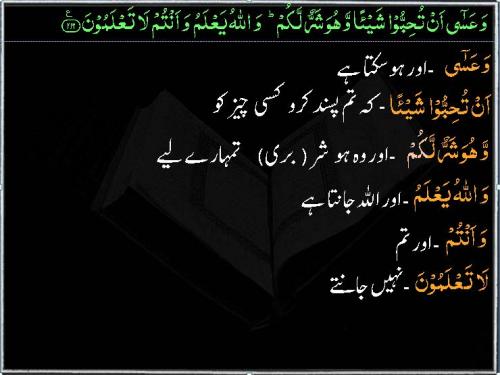 وَعَسٰٓى اَنْ تُحِبُّوْا شَيْـًٔا وَّهُوَ شَرٌّ لَّكُمْ ؕ وَاللّٰهُ يَعْلَمُ وَاَنْتُمْ لَا تَعْلَمُوْنَ
وَعَسٰٓى - اور ہو سکتا ہے
اَنْ تُحِبُّوْا شَيْـًٔا - کہ تم پسند کرو کسی چیز کو
وَّهُوَ شَرٌّ لَّكُمْ - اور وہ ہو شر (بری) تمہارے لیے
وَاللّٰهُ يَعْلَمُ - اور اللہ جانتا ہے
وَاَنْتُمْ - اور تم
لَا تَعْلَمُوْنَ - نہیں جانتے